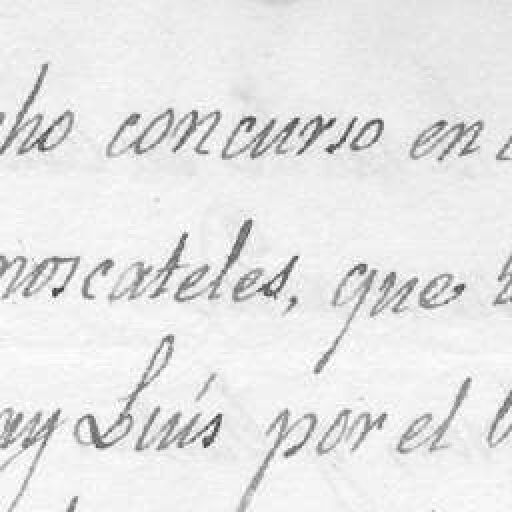 cho concurso en
moscateles, que
ay Luís por el